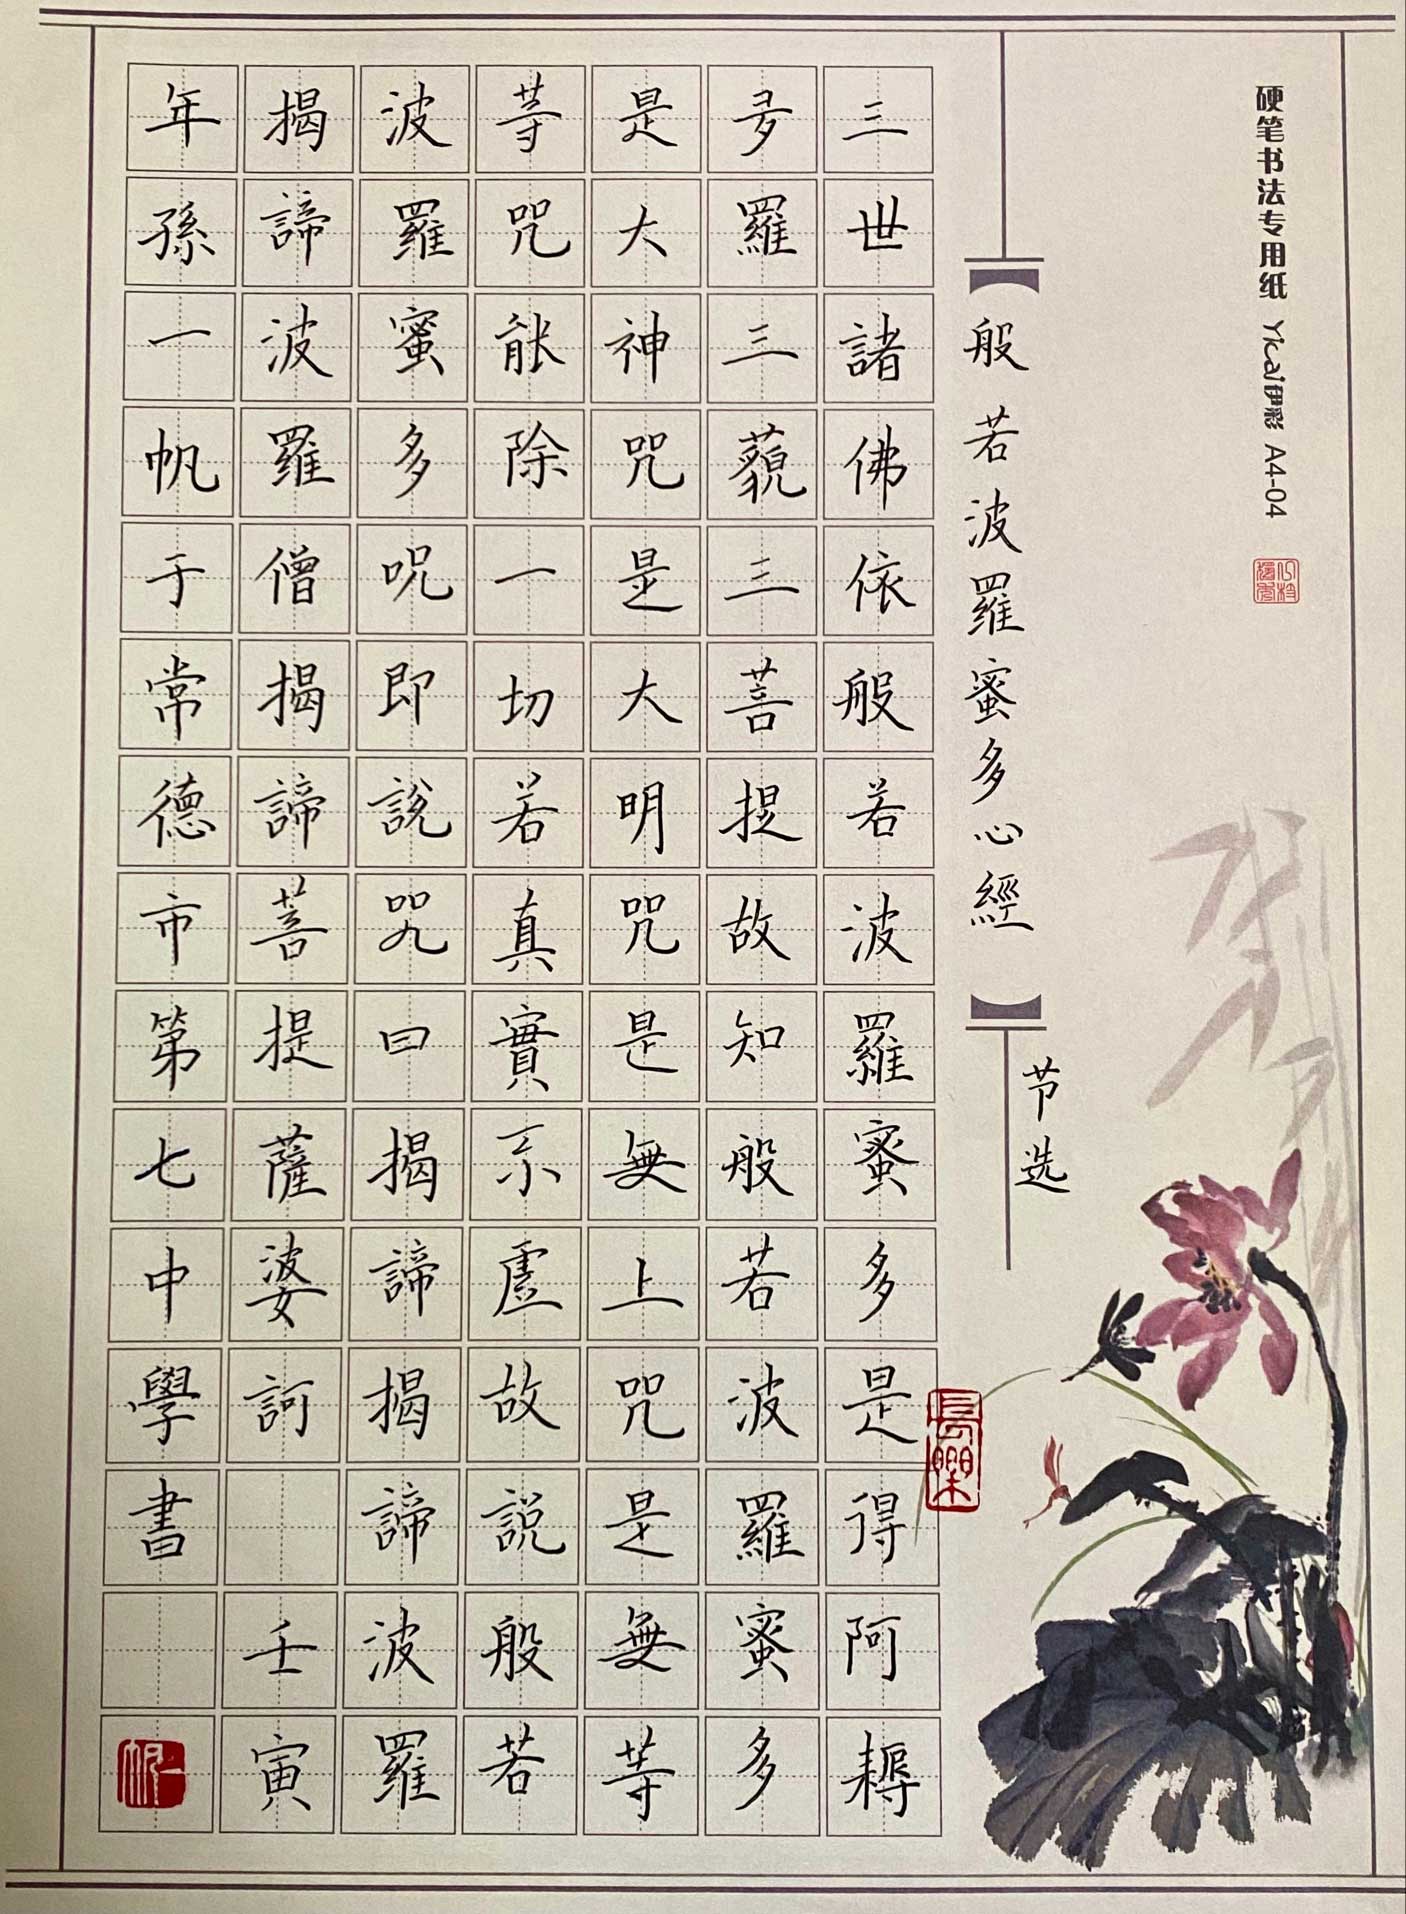 硬笔书法专用纸 Yicai伊彩 A4-04
【般若波羅蜜多心經】节选
三世諸佛依般若波羅蜜多是得阿耨
多羅三藐三菩提故知般若波羅蜜多
是大神咒是大明咒是無上咒是無等
等咒能除一切若真實不虛故說般若
波羅蜜多呪即說咒曰揭諦揭諦波羅
揭諦波羅僧揭諦菩提薩婆訶 壬寅
年孫一帆于常德市第七中學書
長樂